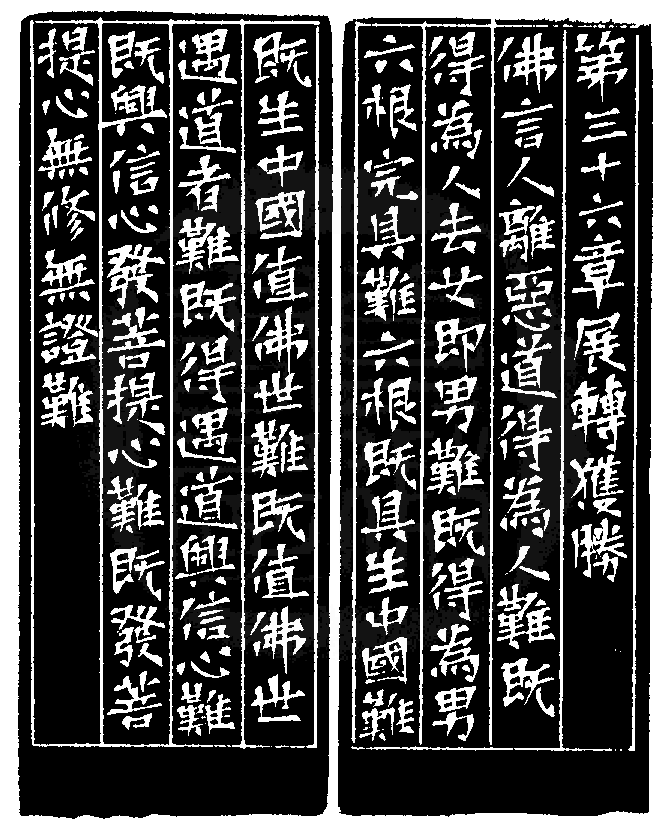 第三十六章展轉獲勝
佛言人離惡道得為人難既
得為人去女即男難既得為男
六根完具難六根既具生中國難
既生中國值佛世難既值佛世
遇道者難既得遇道興信心難
既興信心發菩提心難既發菩
提心無修無證難